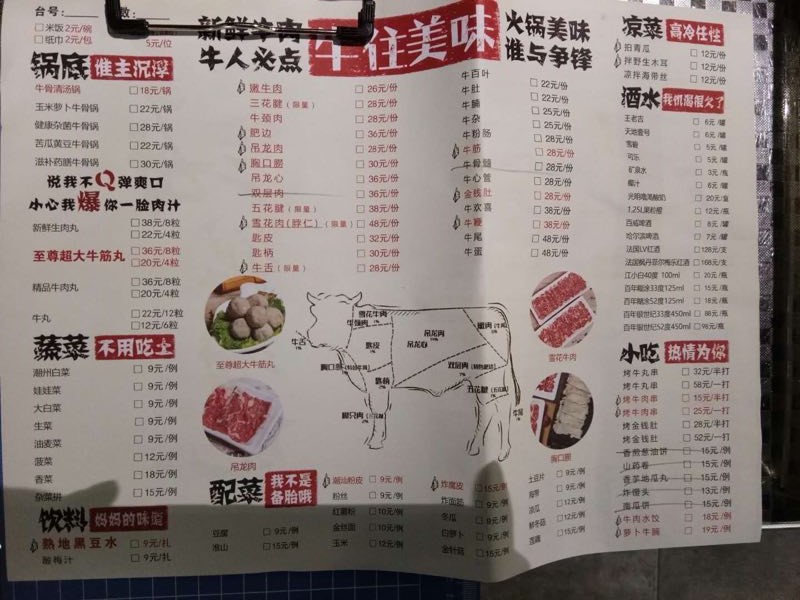 台号:
数:
米饭 2元/碗
纸巾 2元/包
5元/位
锅底 谁主沉浮
牛骨清汤锅 18元/锅
玉米萝卜牛骨锅 22元/锅
健康杂菌牛骨锅 28元/锅
苦瓜黄豆牛骨锅 22元/锅
滋补药膳牛骨锅 30元/锅
说我不Q弹爽口
小心我爆你一脸肉汁
新鲜生肉丸 38元/8粒
22元/4粒
至尊超大牛筋丸 36元/8粒
20元/4粒
精品牛肉丸 36元/8粒
20元/4粒
牛丸 22元/12粒
12元/6粒
蔬菜 不用吃土
潮州白菜 9元/例
娃娃菜 9元/例
大白菜 9元/例
生菜 9元/例
油麦菜 9元/例
菠菜 12元/例
香菜 18元/例
杂菜拼 15元/例
饮料 妈妈的味道
熟地黑豆水 9元/扎
酸梅汁 9元/扎
新鲜牛肉
牛人必点
牛住美味
火锅美味
谁与争锋
嫩牛肉 26元/份
三花腱(限量) 30元/份
牛颈肉 28元/份
肥边 36元/份
吊龙肉 28元/份
胸口朥 30元/份
吊龙心 36元/份
双层肉 36元/份
五花腱(限量) 38元/份
雪花肉(脖仁)(限量) 48元/份
匙皮 32元/份
匙柄 30元/份
牛舌(限量) 28元/份
牛百叶 22元/份
牛肚 22元/份
牛腩 25元/份
牛杂 25元/份
牛粉肠 25元/份
牛筋 28元/份
牛骨髓 28元/份
牛心管 28元/份
金钱肚 28元/份
牛欢喜 38元/份
牛鞭 38元/份
牛尾 48元/份
牛蛋 48元/份
至尊超大牛筋丸
吊龙肉
雪花牛肉
胸口朥
牛舌
1%
雪花牛肉
1%
牛颈肉
匙皮
胸口朥
匙柄
吊龙肉
吊龙心
嫩肉
双层肉
五花腱
牛尾
配菜 我不是备胎哦
豆腐 9元/例
淮山 15元/例
潮汕粉皮 9元/例
粉丝 9元/例
红薯粉 10元/例
金丝面 10元/例
玉米 12元/例
炸腐皮 15元/例
炸面筋 9元/例
冬瓜 9元/例
白萝卜 9元/例
金针菇 15元/例
土豆片 9元/例
海带 9元/例
凉瓜 12元/例
鲜冬菇 12元/例
莲藕 15元/例
凉菜 高冷任性
拍青瓜 12元/份
拌野生木耳 12元/份
凉拌海带丝 12元/份
酒水 我们渴很久了
王老吉 6元/罐
天地壹号 6元/罐
雪碧 5元/罐
可乐 5元/罐
矿泉水 3元/瓶
椰汁 6元/罐
光明莫斯利安酸奶 20元/盒
1.25L果粒橙 12元/瓶
百威啤酒 8元/罐
哈尔滨啤酒 7元/罐
法国LV红酒 128元/支
法国枫丹菲尔梅乐红酒 168元/支
江小白40度 100ml 20元/瓶
百年糊涂33度125ml 15元/瓶
百年糊涂52度125ml 18元/瓶
百年银世纪33度450ml 88元/瓶
百年银世纪52度450ml 98元/瓶
小吃 热情为你
烤牛丸串 32元/半打
烤牛丸串 58元/一打
烤牛肉串 15元/半打
烤牛肉串 25元/一打
烤金钱肚 28元/半打
烤金钱肚 52元/一打
香煎葱油饼 15元/例
山药卷 15元/例
香芋地瓜丸 15元/例
炸馒头 13元/例
南瓜饼 15元/例
牛肉水饺 18元/例
萝卜牛腩 19元/例